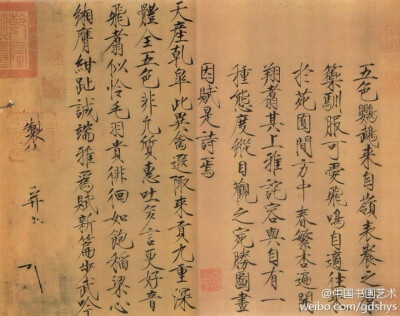 五色鸚鵡來自嶺表養之
籞馴服可愛飛鳴自適往
於苑囿間方中春繁杏遍開
翔翥其上雅詫容與自有一
種態度縱目觀之宛勝圖畫
因賦是詩焉
天產乾皋此異禽遐陬來貢九重深
體全五色非凡質惠吐多言更好音
飛翥似憐毛羽貴徘徊如飽稻粱心
緗膺紺趾誠端雅爲賦新篇步武吟
製
并
@中国书画艺术
weibo.com/gdshys